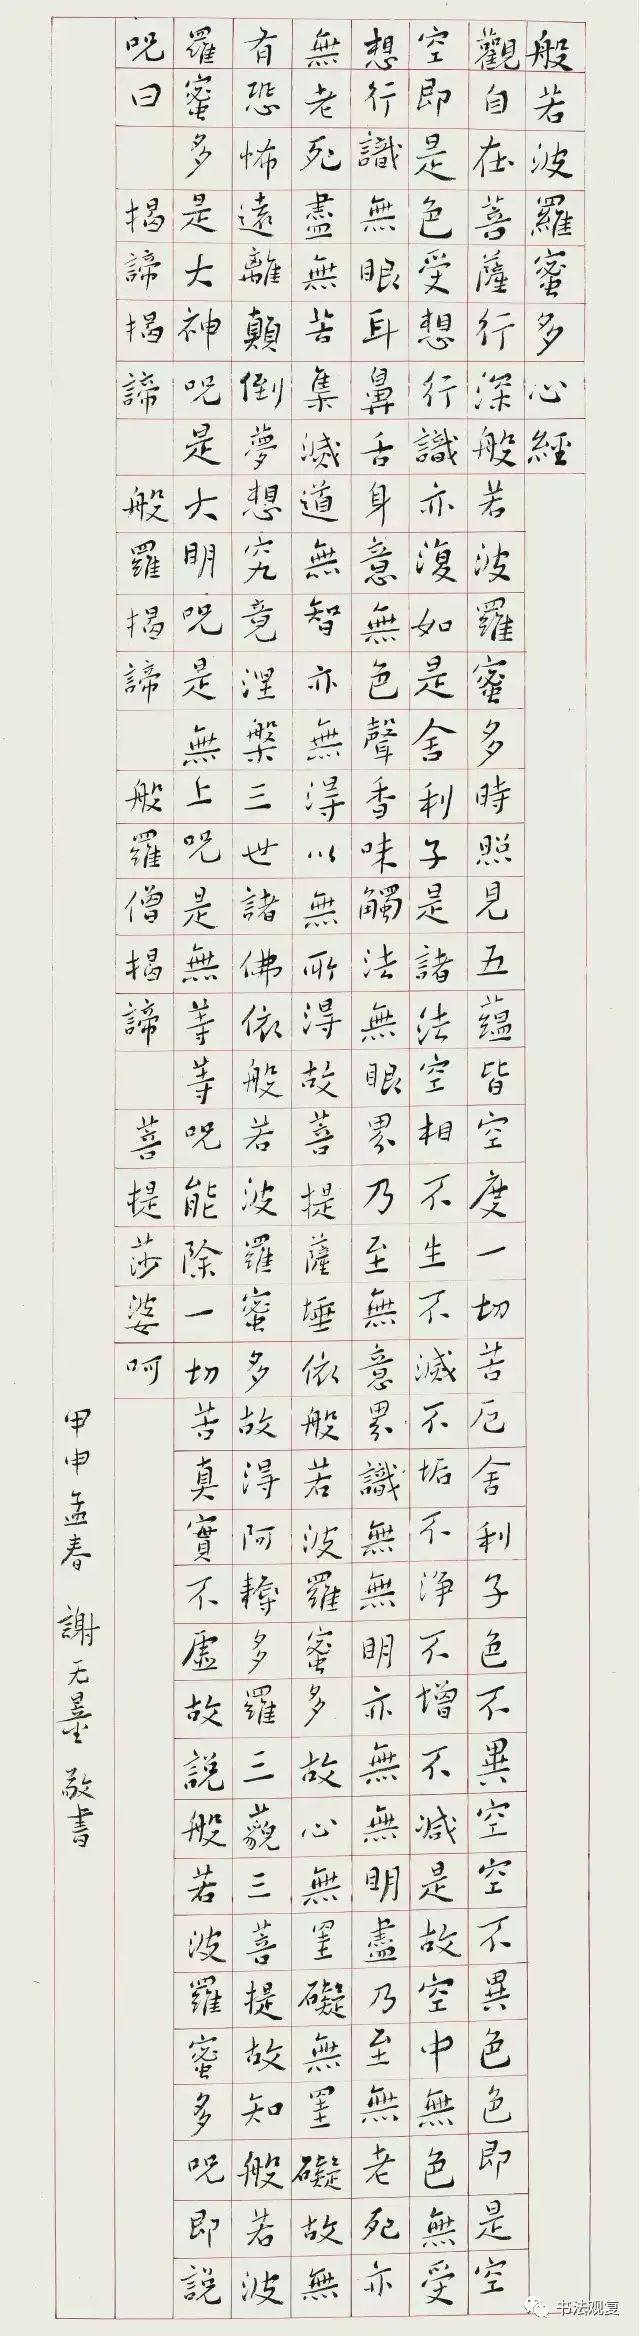 般若波羅蜜多心經
觀自在菩薩行深般若波羅蜜多時照見五蘊皆空度一切苦厄舍利子色不異空空不異色色即是空
空即是色受想行識亦復如是舍利子是諸法空相不生不滅不垢不淨不增不減是故空中無色無受
想行識無眼耳鼻舌身意無色聲香味觸法無眼界乃至無意界識無無明亦無無明盡乃至無老死亦
無老死盡無苦集滅道無智亦無得以無所得故菩提薩埵依般若波羅蜜多故心無罣礙無罣礙故無
有恐怖遠離顛倒夢想究竟涅槃三世諸佛依般若波羅蜜多故得阿耨多羅三藐三菩提故知般若波
羅蜜多是大神呪是大明呪是無上呪是無等等呪能除一切苦真實不虛故說般若波羅蜜多呪即說
呪曰 揭諦揭諦 般羅揭諦 般羅僧揭諦 菩提莎婆呵
甲申孟春 謝无量敬書
书法观复